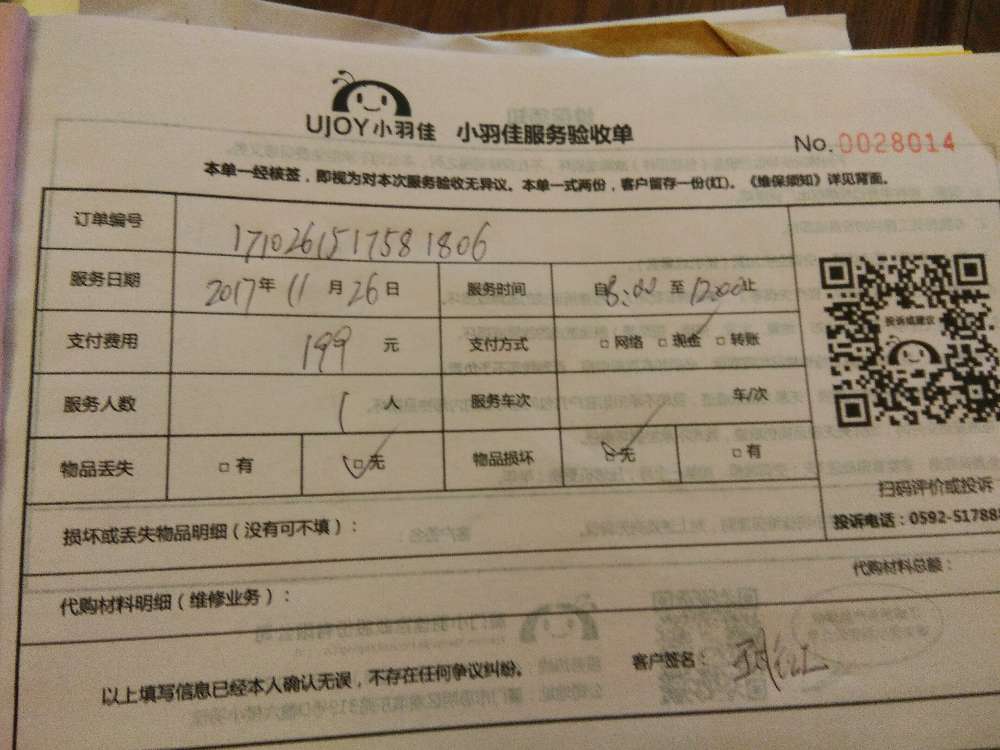 UJOY小羽佳 小羽佳服务验收单
No.0028014
本单一经核签，即视为对本次服务验收无异议。本单一式两份，客户留存一份(红)。《维保须知》详见背面。
订单编号 171026151758 1806
服务日期 2017年 11 月 26 日 服务时间 自8:00 至 12:00止
支付费用 199 元 支付方式 □ 网络 □ 现金 □ 转账
服务人数 1 人 服务车次 车/次
物品丢失 □ 有 □ 无 物品损坏 □ 无 □ 有
投诉或建议
扫码评价或投诉
投诉电话：0592-51788
损坏或丢失物品明细（没有可不填）：
代购材料明细（维修业务）： 代购材料总额：
以上填写信息已经本人确认无误，不存在任何争议纠纷。 客户签名：